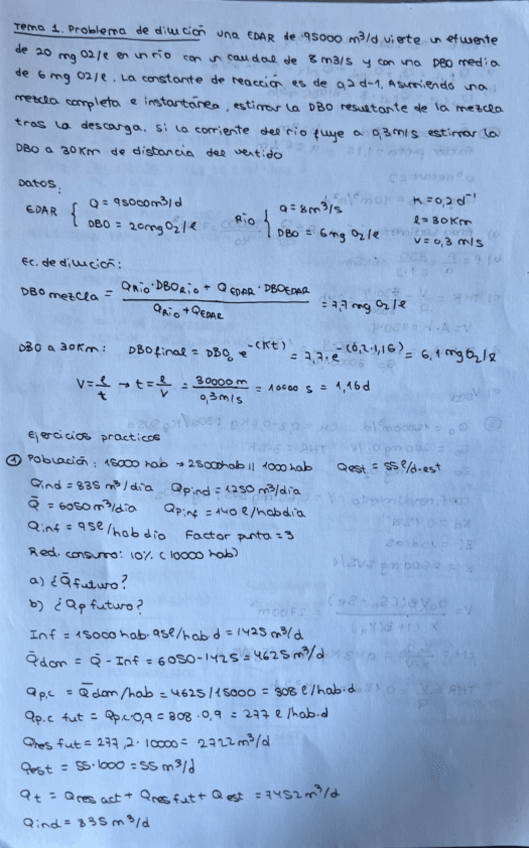 Tema 1. Problema de dilución una EDAR de 95000 m³/d vierte un efluente
de 20 mg O2/l en un río con un caudal de 8 m3/s y con una DBO media
de 6 mg O2/l. La constante de reacción es de 0,2 d-1, Asumiendo una
mezcla completa e instantánea, estimar la DBO resultante de la mezcla
tras la descarga. Si la corriente del río fluye a 0,3 m/s estimar la
DBO a 30 Km de distancia del vertido
DATOS:
EDAR { Q = 95000 m³/d DBO = 20 mg O2/l RIO { Q = 8 m³/s DBO = 6 mg O2/l K = 0,2 d⁻¹ l = 30 Km v = 0,3 m/s
Ec. de dilución:
DBO mezcla = (QRio·DBORio + QEDAR·DBOEDAR) / (QRio + QEDAR) = 7,7 mg O2/l
DBO a 30 Km: DBO final = DBO₀ e^-(Kt) = 7,7·e^-(0,2·1,16) = 6,1 mg O2/l
V = l/t → t = l/v = 30000 m / 0,3 m/s = 10000 s = 1,16 d
Ejercicios practicos
① Población: 15000 hab → 25000 hab || 1000 hab Qest = 55 l/d·est
Qind = 835 m³/día Qpind = 1250 m³/día
Q̄ = 6050 m³/día Qpinf = 140 l/hab día
Qinf = 95 l/hab dia Factor punta = 3
Red. consumo: 10% (10000 hab)
a) ¿Q̄ futuro?
b) ¿Qp futuro?
Inf = 15000 hab·95 l/hab d = 1425 m³/d
Q̄dom = Q̄ - Inf = 6050 - 1425 = 4625 m³/d
Qp.c = Q̄dom/hab = 4625/15000 = 308 l/hab·d
Qp.c fut = Qp.c·0,9 = 308·0,9 = 277 l/hab·d
Qres fut = 277,2·10000 = 2722 m³/d
Qest = 55·1000 = 55 m³/d
Qt = Qres act + Qres fut + Qest = 7452 m³/d
Qind = 835 m³/d